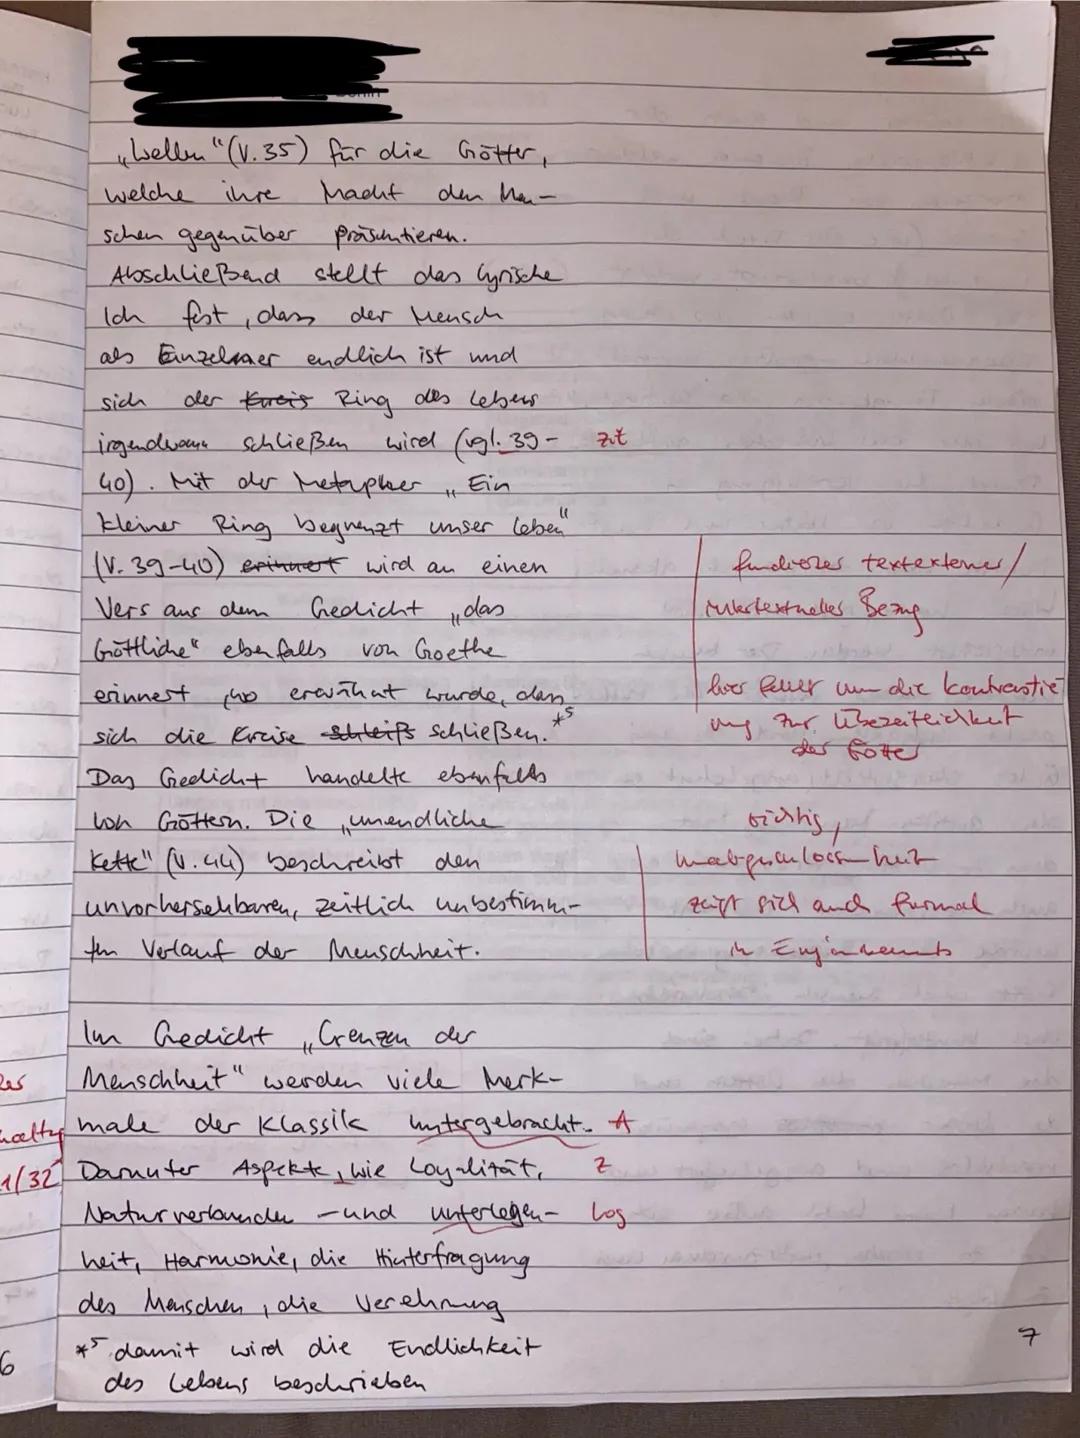 „Wellen" (V. 35) für die Götter,
welche ihre Macht den Men-
schen gegenüber präsentieren.
Abschließend stellt das lyrische
Ich fest, dass der Mensch
als Einzelner endlich ist und
sich der Kreis Ring des Lebens
irgendwann schließen wird (vgl. 39- Zit
40). Mit der Metapher „Ein
kleiner Ring begrenzt unser Leben"
(V. 39-40) erinnert wird an einen
Vers aus dem Gedicht „das
Göttliche" ebenfalls von Goethe
erinnert, wo erwähnt wurde, dass
sich die Kreise schließen. *5
Das Gedicht handelte ebenfalls
von Göttern. Die „unendliche
Kette" (V. 44) beschreibt den
unvorhersehbaren, zeitlich unbestimm-
ten Verlauf der Menschheit.
fundierter textexterner/
intertextueller Bezug
hier fehlt nur die Kontrastie-
ung zur Überzeitlichkeit
der Götter
richtig,
Unabgeschlossenheit
zeigt sich auch formal
in Enjambements
Im Gedicht „Grenzen der
Menschheit" werden viele Merk-
male der Klassik untergebracht. A
Darunter Aspekte, wie Loyalität, Z
Naturverbunden -und unterlegen- Log
heit, Harmonie, die Hinterfragung
des Menschen, die Verehrung
*5 damit wird die Endlichkeit
des Lebens beschrieben
7
1/32
6